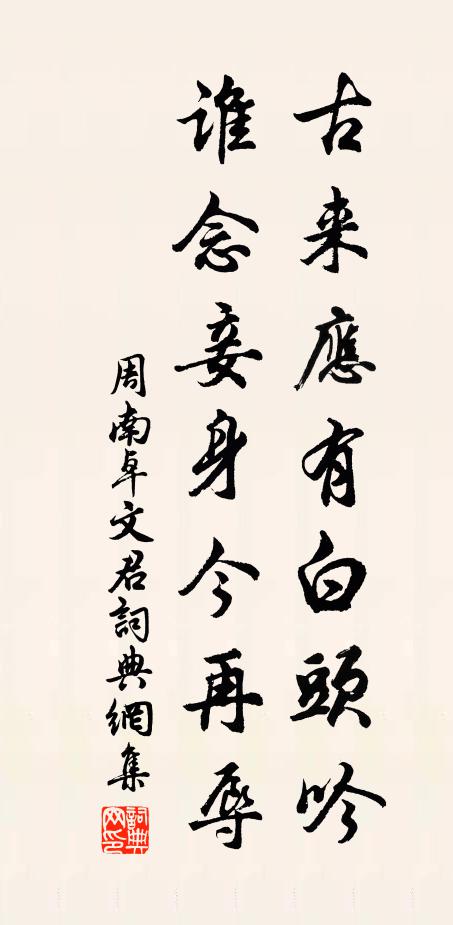 古来應有白頭吟
誰念妾身今再辱
周南卓文君詞典網集
詞典網印